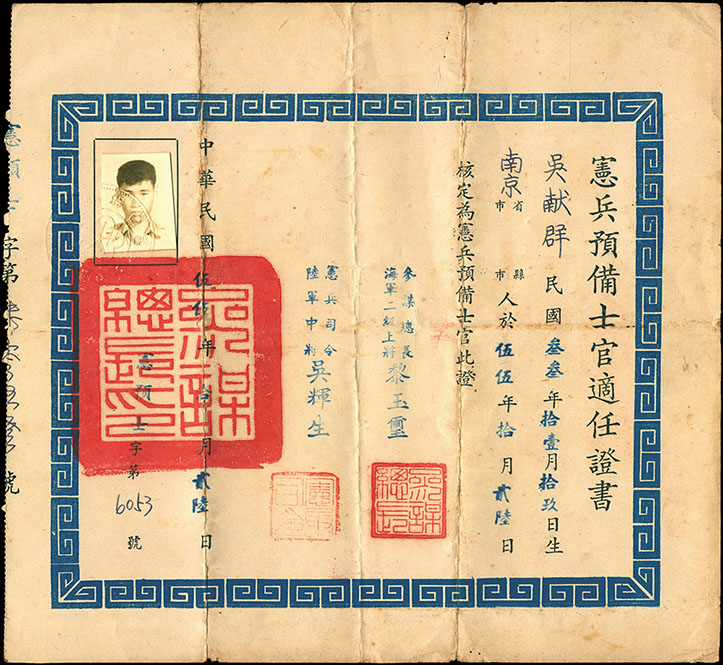 憲兵預備士官適任證書
吳献群 民國叁叁年拾壹月拾玖日生
南京 省市 縣市 人於伍伍年拾月貳陸日
核定為憲兵預備士官此證
參謀總長
海軍二級上將 黎玉璽
憲兵司令
陸軍中將 吳輝生
中華民國伍伍年拾月貳陸日
憲預士字第6053號
參謀總長印
參謀總長
憲兵司令
字第
號